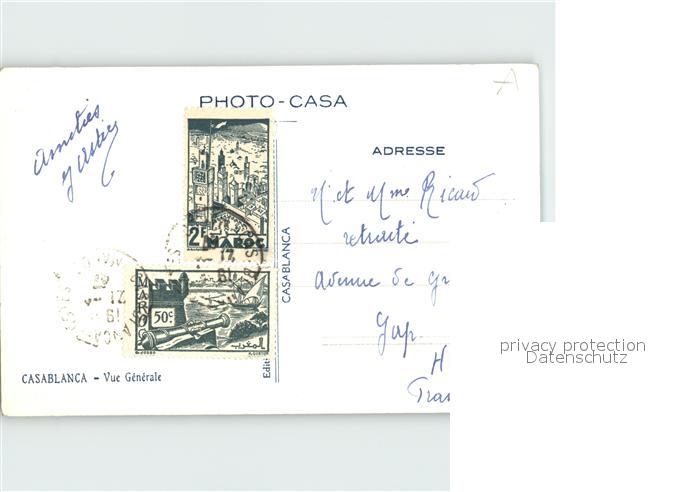 PHOTO-CASA
Amitiés
ADRESSE
M. et Mme Ricard
retraité
Avenue de Gr
Gap.
H
Fran
2F MAROC
MAROC
50c
المغرب
CASABLANCA
Edit
CASABLANCA – Vue Générale
privacy protection
Datenschutz